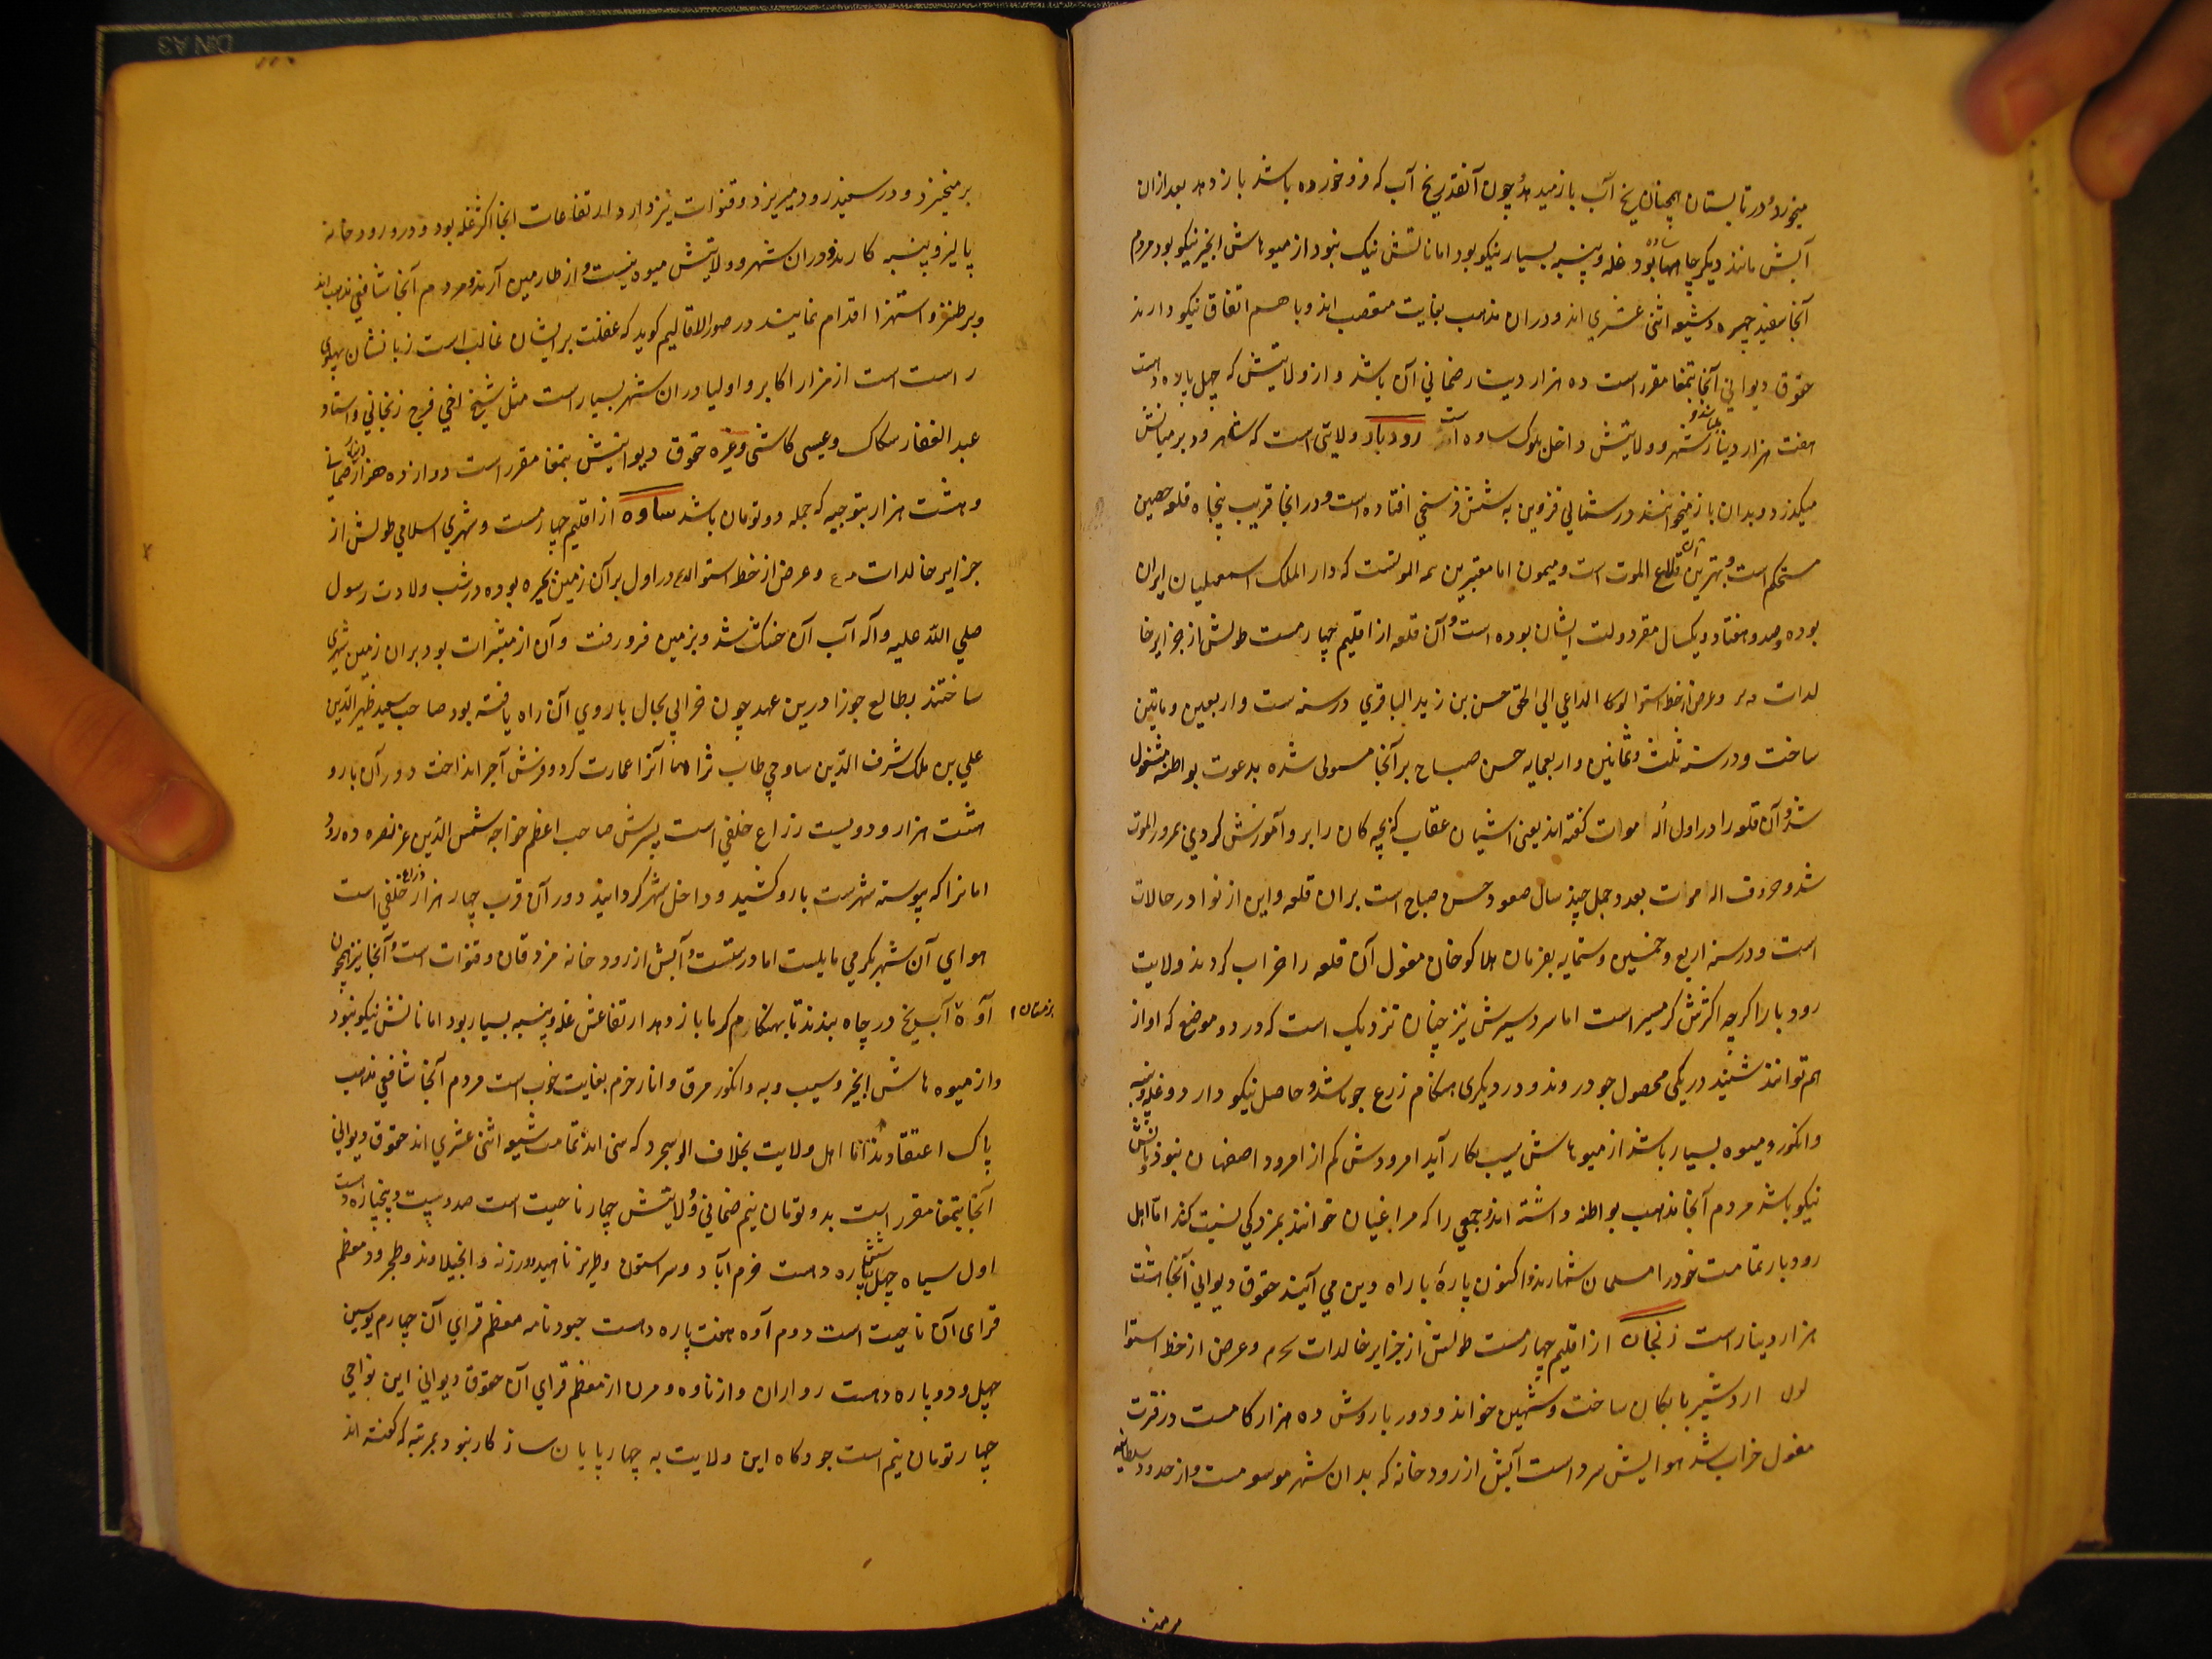 میخورد و در تابستان همچنان یخ آب باز میدهد و چون آنقدر یخ آب که فرو خورده باشد باز دهد بعد از ان
آبش مانند دیکر چاهها بود ساده غله و پنبه بسیار نیکو بود اما نانش نیک نبود از میوهاش انجیر نیکو بود مردم
آنجا سفید چهره و شیعه اثنی عشری اند و در ان مذهب بغایت متعصب اند و با هم اتفاق نیکو دارند
حقوق دیوانی آنجا بتمغا مقرر است ده هزار دینار ضمانی آن باشد و از ولایتش که چهل پاره ده است
هفت هزار دینار باشد و شهر و ولایتش داخل بلوک ساوه است رودبار ولایتی است که شاهرود بر میانش
میکذرد و بدان باز میخوانند در شمالی قزوین به شش فرسنکی افتاده است و در انجا قریب پنجاه قلعه حصین
مستحکم است و بهترین آن قلاع الموت است و میمون اما معتبرین همه الموتست که دار الملک اسمعیلیان ایران
بوده و صد و هفتاد و یکسال مقر دولت ایشان بوده است و آن قلعه از اقلیم چهارمست طولش از جزایر خا
لدات و عرض از خط استوا الداعی الی الحق حسن بن زید الباقری در سنه ست و اربعین و مایتین
ساخت و در سنه ثلث و ثمانین و اربعمایه حسن صباح بر آنجا مستولی شده بدعوت بواطنه مشغول
شد و آن قلعه را در اول اله اموت کفته اند یعنی اشیان عقاب که بچه کان را برو آموزش کردی بمرور الموت
شد و حروف اله اموت بعدد جمل چند سال صعود حسن صباح است بران قلعه و این از نوادر حالات
است و در سنه اربع و خمسین و ستمایه بفرمان هلاکو خان مغول آن قلعه را خراب کردند ولایت
رودبار اکرچه اکثرش کرمسیر است اما سردسیرش نیز چنان نزدیک است که در دو موضع که اواز
هم توانند شنید در یکی محصول جو دروند و در دیکری هنکام زرع جو باشد و حاصل نیکو دارد و غله و پنبه
و انکور و میوه بسیار باشد از میوهاش سیب بکار آید امرودش کم از امرود اصفهان نبود و نانش
نیکو باشد مردم آنجا مذهب بواطنه داشته اند و جمعی را که مراغیان خوانند بمزدکی نسبت کنند اما اهل
رودبار تمامت خود را مسلمان شمارند و اکنون پارهٔ با راه دین می آیند حقوق دیوانی آنجا هشت
هزار دینار است زنجان از اقلیم چهارمست طولش از جزایر خالدات و عرض از خط استوا
اردشیر بابکان ساخت و شهین خواند و دور باروش ده هزار کامست در فترت
مغول خراب شد هوایش سرد است آبش از رودخانه که بدان شهر موسومست و از حدود سلطانیه
برمیخیزد و در سفیدرود میریزد و قنوات نیز دارد و ارتفاعات انجا اکثر غله بود و در و رودخانه
پالیز و پنبه کارند و در ان شهر و ولایتش میوه نیست و از طارمین آرند و مردم آنجا شافعی مذهب اند
و بر طنز و استهزا اقدام نمایند در صور الاقالیم کوید که غفلت بر ایشان غالب است زبانشان پهلوی
راست است از مزار اکابر و اولیا در ان شهر بسیار است مثل شیخ اخی فرج زنجانی و استاد
عبد الغفار سکاک و عیسی کاشی و غیره حقوق دیوانیش بتمغا مقرر است دوازده هزار دینار ضمانی
و هشت هزار بتوجیه که جمله دو تومان باشد ساوه از اقلیم چهارمست و شهری اسلامی طولش از
جزایر خالدات و عرض از خط استوا در اول بر آن زمین بحیره بوده در شب ولادت رسول
صلی الله علیه و آله آب آن خشک شد و بزمین فرو رفت و آن از مبشرات بود بران زمین شهری
ساختند بطالع جوزا درین عهد چون خرابی بحال باروی آن راه یافته بود صاحب سعید ظهیر الدین
علی بن ملک شرف الدین ساوجی طاب ثراهما آنرا عمارت کرد و فرش آجر انداخت دور آن بارو
هشت هزار و دویست ذراع خلقی است پسرش صاحب اعظم خواجه شمس الدین عز نصره ده رود
امانرا که پیوسته شهرست بارو کشید و داخل شهر کردانید دور آن قرب چهار هزار ذراع خلقی است
هوای آن شهر بکرمی مایلست اما درستست آبش از رودخانه مزدقان و قنوات است و آنجا نیز همچون
آوه آب یخ بزمستان در چاه بندند تا بهنکام کرما باز دهد ارتفاعش غله و پنبه بسیار بود اما نانش نیکو نبود
و از میوه هاش انجیر و سیب و به و انکور مرق و انار خرم بغایت خوب است مردم آنجا شافعی مذهب
پاک اعتقادند اما اهل ولایت بخلاف الوسجرد که سنی اند تمامت شیعه اثنی عشری اند حقوق دیوانی
آنجا بتمغا مقرر است بدو تومان نیم ضمانی و ولایتش چهار ناحیت است صد و بیست و پنج پاره ده است
اول سیاه چهل و شش پاره دهست خرم آباد و سراستون و طریز ناهید و ورزنه و انجیلاوند و طجرود معظم
قرای آن ناحیت است دوم آوه هفت پاره دهست جبود نامه معظم قرای آن چهارم بوسین
چهل و دو پاره دهست رواران و ازناوه و مرن از معظم قرای آن حقوق دیوانی این نواحی
چهار تومان نیم است جو و کاه این ولایت به چهارپایان ساز کار نبود بمرتبه که کفته اند